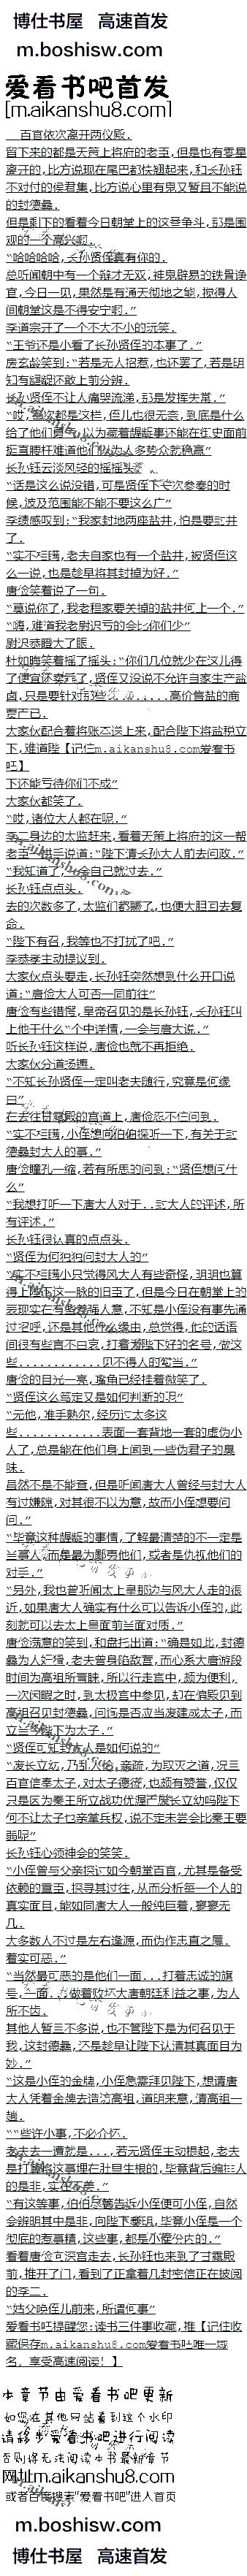 博仕书屋 高速首发
m.boshisw.com
爱看书吧首发
[m.aikanshu8.com]
百官依次离开两仪殿.
留下来的都是天策上将府的老臣,但是也有零星
离开的,比方说现在尾巴都快翘起来,和长孙钰
不对付的侯君集,比方说心里有鬼又暂且不能说
的封德彝.
但是剩下的看着今日朝堂上的这些争斗,那是围
观的一个高兴啊.
“哈哈哈哈,长孙贤侄真有你的.
李道宗开了一个不大不小的玩笑.
“王爷还是小看了长孙贤侄的本事了.”
房玄龄笑到:“若是无人招惹,也还罢了,若是明
长孙钰云淡风轻的摇摇头
“话是这么说没错,可是贤侄下一次参奏的时
候,波及范围能不能不要这么广”
李绩感叹到:“我家封地两座盐井,怕是要封井
了.
“实不相瞒,老夫自家也有一个盐井,被贤侄这
么一说,也是趁早将其封掉为好.”
唐俭笑着说了一句.
“莫说你了,我老程家要关掉的盐井何上一个.”
“嗨,难道我老尉迟亏的会比你们少”
尉迟恭瞪大了眼.
杜如晦笑着摇了摇头:“你们几位就少在这儿得
了便宜还卖乖了,贤侄又没说不允许自家生产盐
卤,只是要针对那些......高价售盐的商
贾而已.
大家伙配合着将账本送上来,配合陛下将盐税立
下,难道陛【记住m.aikanshu8.com爱看书
吧】
下还能亏待你们不成”
大家伙都笑了.
“哎,诸位大人都在呢.”
李二身边的太监赶来,看着天策上将府的这一帮
老臣一拱手说道:“陛下请长孙大人前去问政.”
“我知道了,一会自己就过去.”
长孙钰点点头.
去的次数多了,太监们都熟了,也便大胆回去复
命.
“陛下有召,我等也不打扰了吧.”
李恭孝主动提议到.
大家伙点头要走,长孙钰突然想到什么开口说
道:“唐俭大人可否一同前往”
唐俭有些错愕,皇帝召见的是长孙钰,长孙钰叫
上他干什么“个中详情,一会与唐大说.”
听长孙钰这样说,唐俭也就不再拒绝.
大家伙分道扬镳.
“不知长孙贤侄一定叫老夫随行,究竟是何缘
由”
在去往甘露殿的宫道上,唐俭忍不住问到.
“实不相瞒,小侄想向伯伯探听一下,有关于封
德彝封大人的事.”
唐俭瞳孔一缩,若有所思的问到:“贤侄想问什
么”
“我想打听一下唐大人对于..封大人的评述,所
有评述.”
长孙钰很认真的点点头.
“贤侄为何独独问封大人的”
“实不相瞒小只觉得风大人有些奇怪,明明也算
得上陛下这一脉的旧臣了,但是今日在朝堂上的
表现实在有点差强人意,不知是小侄没有事先通
过招呼,还是其他什么缘由,总觉得,他的话语
间很有些言不由衷,打着为陛下好的名号,做这
些............见不得人的勾当.”
唐俭的目光一亮,嘴角已经挂着微笑了.
“贤侄这么笃定又是如何判断的呢”
“无他,唯手熟尔,经历过太多这
些............表面一套背地一套的虚伪小
人了,总是能在他们身上闻到一些伪君子的臭
味.
虽然不是不能查,但是听闻唐大人曾经与封大人
有过嫌隙,对其很不以为意,故而小侄想要问
问.”
“毕竟这种龌龊的事情,了解最清楚的不一定是
当事人,而是最为鄙夷他们,或者是仇视他们的
对手.”
“另外,我也曾听闻太上皇那边与风大人走的很
近,如果唐大人确实有什么可以告诉小侄的,此
刻就可以去太上皇面前当面对质.”
唐俭满意的笑到,和盘托出道:“确是如此,封德
彝为人奸猾,老夫曾身陷敌营,而心系大唐游段
时间为高祖所青睐,所以行走宫中,颇为便利,
一次闲暇之时,到太极宫中参见,却在偏殿见到
高祖召见封德彝,问询是否应当废建成太子,而
立当今陛下为太子.”
“贤侄可知封德人是如何说的”
“废长立幼,乃乱之根源,亲疏,为取灭之道,况三
百官信奉太子,对太子德彩,也颇有赞誉,仅仅
只是因为秦王所立战功优渥便废长立幼吗陛下
何不让太子也亲掌兵权,说不定未尝会比秦王要
弱呢”
长孙钰心领神会的笑笑.
“小侄曾与父亲探讨如今朝堂百官,尤其是备受
依赖的重臣,探寻其过往,从而分析每一个人的
真实面目,能如同唐大人一般纯臣着,寥寥无
几.
大多数人不过是左右逢源,而伪作忠直之属.
着实可恶.”
“当然最可恶的是他们一面...打着忠诚的旗
号,一面..,做着败坏大唐朝廷利益之事,为人
所不齿.
其他人暂且不多说,也不管陛下是为何召见于
我,这封德彝,还是趁早让陛下认清其真面目为
妙.”
“这是小侄的金牌,小侄急需拜见陛下,想请唐
大人凭着金牌去造访高祖,道明来意,请高祖一
趟.
““些许小事,不必介怀.
老夫去一遭就是...,若无贤侄主动提起,老夫
是打算将这事埋在肚里生根的,毕竟背后编排人
的是非,实在不美.”
“有这等事,伯伯尽管告诉小侄便可小侄,自然
会辨明其中是非,向陛下奏明,毕竟小侄是一个
彻底的惹事精,这些事,都是小侄分内的.”
看着唐俭向深宫走去,长孙钰也来到了甘露殿
前,推开了门,看到了正拿着几封密信正在披阅
的李二.
“姑父唤侄儿前来,所谓何事”
爱看书吧提醒您:读书三件事收藏,推【记住收
藏保存m.aikanshu8.com爱看书吧唯一域
名,享受高速阅读!】
本章节由爱看书吧更新
如您在其他网站看到这个水印
请移步爱看书吧进行阅读
否则将无法阅读本书最新章节
网址m.aikanshu8.com
或者百度搜索"爱看书吧"进入首页
m.boshisw.com
博仕书屋 高速首发